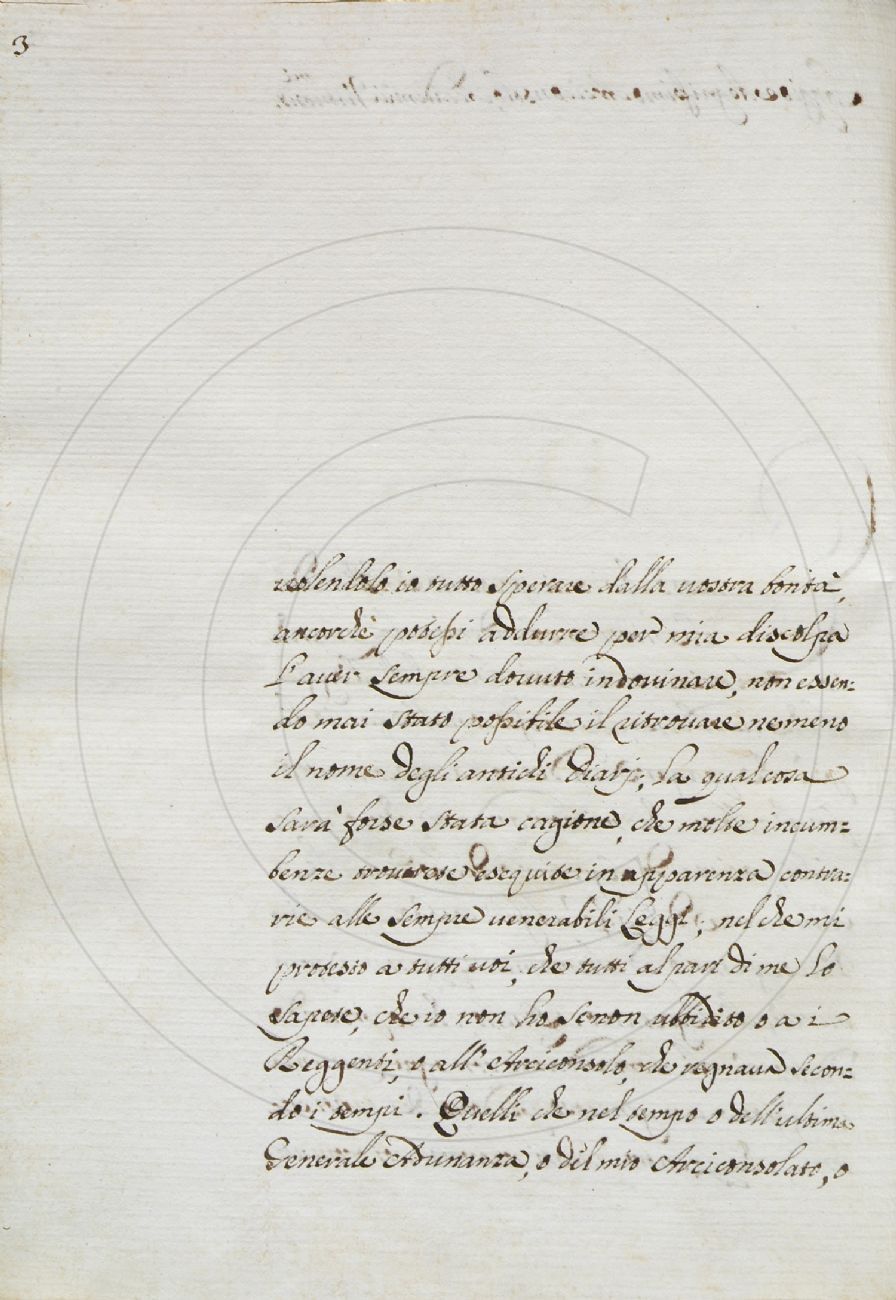 3
volendolo io tutto sperare dalla vostra bontà,
ancorchè potessi addurre per mia discolpa
l'aver sempre dovuto indovinare, non essen=
do mai stato possibile il ritrovare nemeno
il nome degli antichi Diarj; la qual cosa
sarà forse stata cagione, che molte incum=
benze troverete esequite in apparenza contra=
rie alle sempre venerabili Leggi; nel che mi
protesto a tutti voi, che tutti al pari di me lo
sapete, che io non ho se non ubbidito o a i
Reggenti, o all'Arciconsolo, che regnava secon=
do i tempi. Quelli che nel tempo o dell'ultima
Generale Adunanza, o del mio Arciconsolato, o